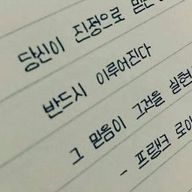 당신이 진정으로 믿는
반드시 이루어진다
그 믿음이 그것을 실현
- 프랭크 로이